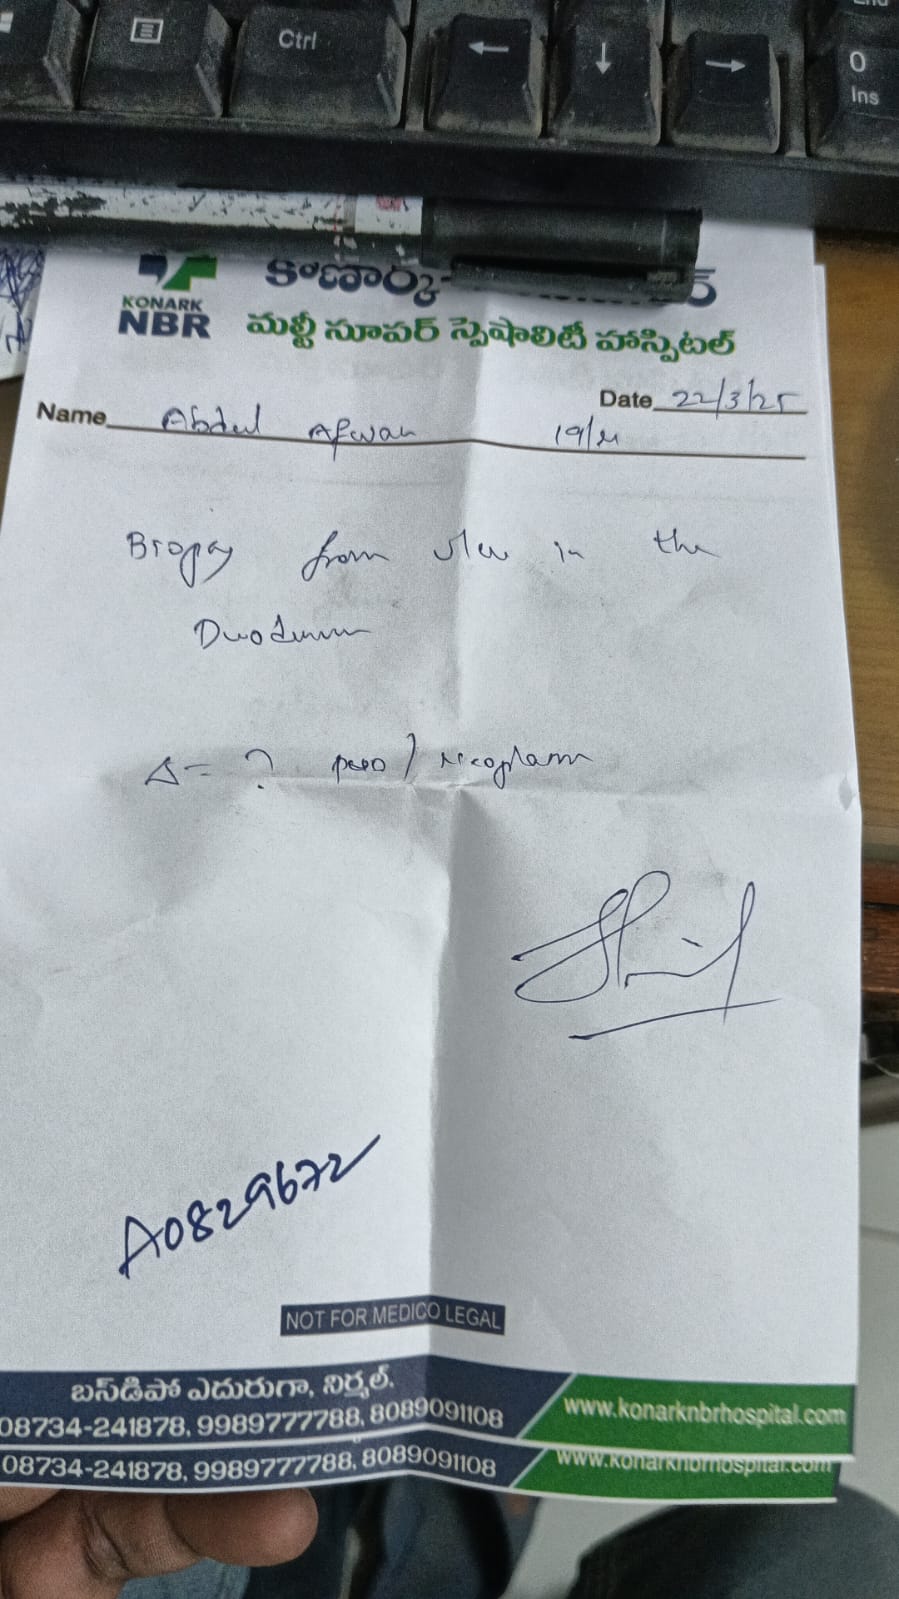 Ctrl
0
Ins
KONARK
NBR
కోణార్క
మల్టీ సూపర్ స్పెషాలిటీ హాస్పిటల్
Date 22/3/25
Name Abdul Afwan 19/M
Biopsy from ulcer in the
Duodenum
Δ= ? / Neoplasm
A0829672
NOT FOR MEDICO LEGAL
బస్‌డిపో ఎదురుగా, నిర్మల్.
08734-241878, 9989777788, 8089091108
www.konarknbrhospital.com
08734-241878, 9989777788, 8089091108
www.konarknbrhospital.com